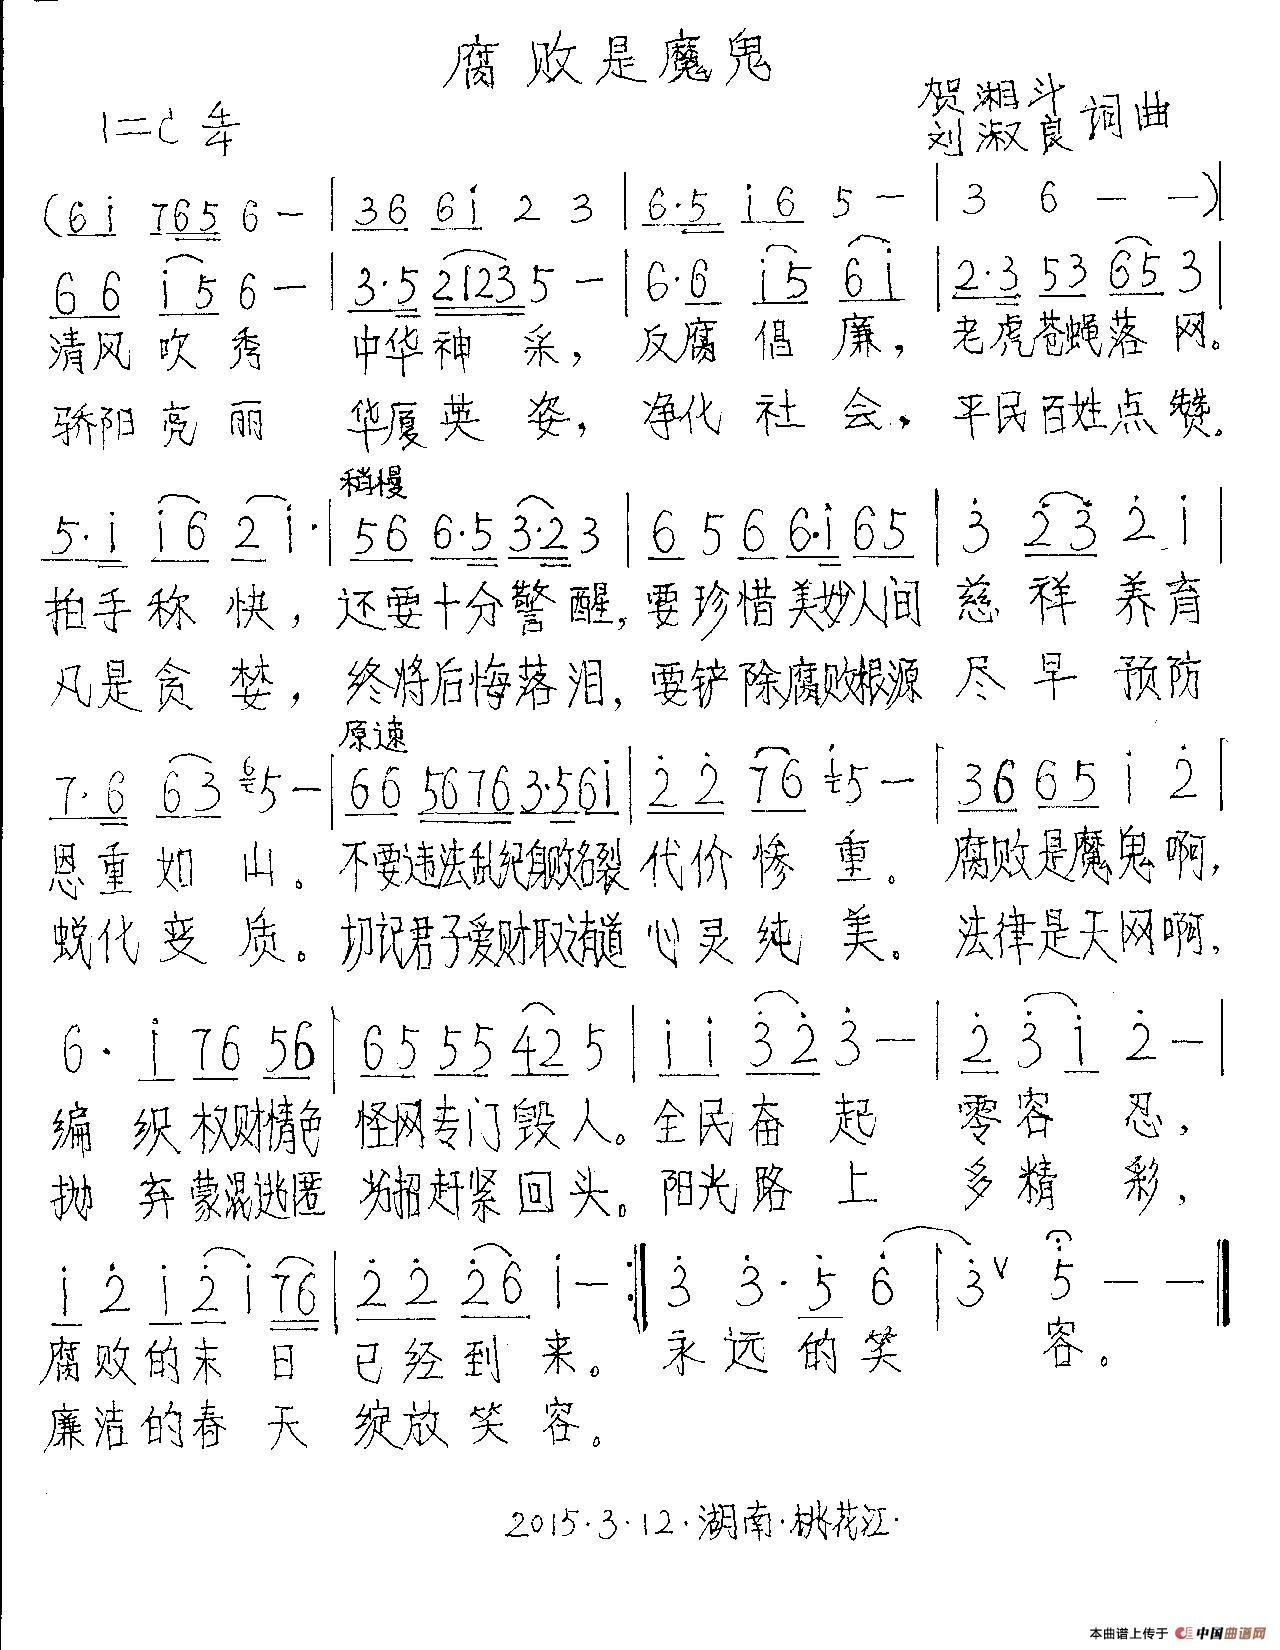 腐败是魔鬼
贺湘斗
刘淑良 词曲
1=C 4/4
(6i 765 6- | 36 6i 2 3 | 6·5 i6 5- | 3 6 - -)|
66 i5 6- | 3·5 2123 5 - | 6·6 i5 6i | 2·3 53 65 3 |
清风吹秀 中华神采，反腐倡廉，老虎苍蝇落网。
骄阳亮丽 华厦英姿，净化社会，平民百姓点赞。
稍慢
5·i i6 2 i· | 56 6·5 3·2 3 | 6 5 6 6·i 65 | 3 23 2 i |
拍手称快，还要十分警醒，要珍惜美妙人间 慈祥养育
凡是贪婪，终将后悔落泪，要铲除腐败根源 尽早预防
原速
7·6 63 6 5- | 66 5676 3·56i | 2 2 76 i 5- | 36 65 i 2 |
恩重如山。不要违法乱纪身败名裂 代价惨重。腐败是魔鬼啊，
蜕化变质。切记君子爱财取之有道 心灵纯美。法律是天网啊，
6· i 76 56 | 65 55 42 5 | i i 32 3- | 2 3 i 2- |
编织权财情色 怪网专门毁人。全民奋起 零容忍，
抛弃蒙混逃匿 劝招赶紧回头。阳光路上 多精彩，
i 2 i 2 i 76 | 2 2 26 i- :| 3 3· 5 6 | 3 V 5 - - ‖
腐败的末日 已经到来。永远的笑 容。
廉洁的春天 绽放笑容。
2015·3·12·湖南·桃花江·
本曲谱上传于 中国曲谱网